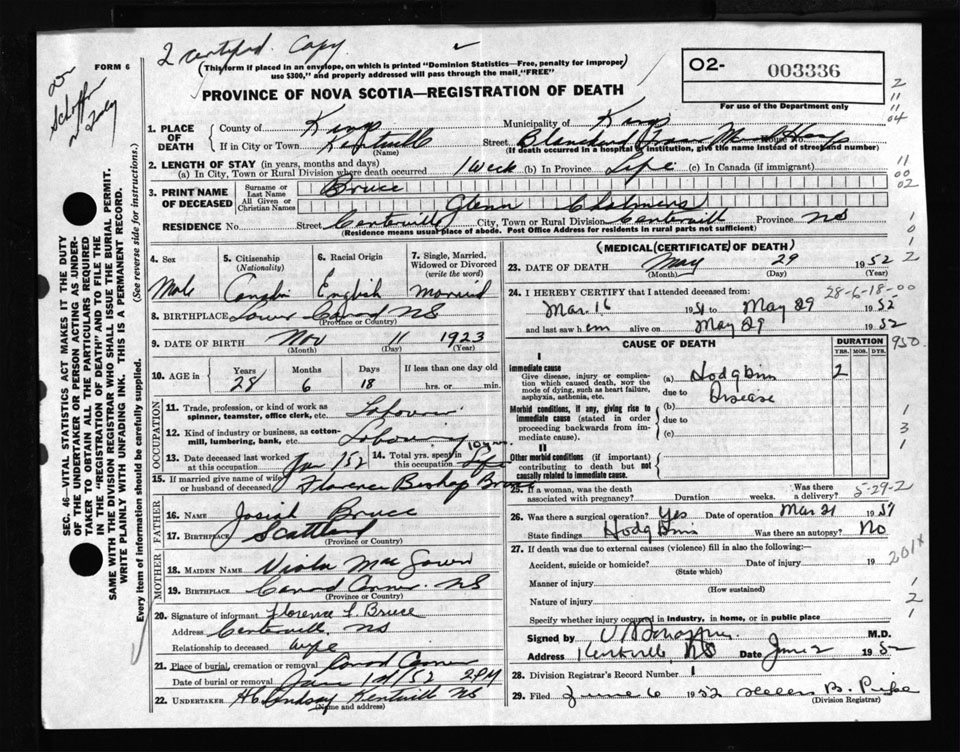 2 certified. Copy
FORM 6
(This form if placed in an envelope, on which is printed "Dominion Statistics—Free, penalty for improper use $300," and properly addressed will pass through the mail, "FREE"
O2- 003336
For use of the Department only
PROVINCE OF NOVA SCOTIA—REGISTRATION OF DEATH
1. PLACE OF DEATH
County of Kings Municipality of Kings
If in City or Town Kentville Street Blanchard Hosp House No.
(Name) (If death occurred in a hospital or institution, give the name instead of street and number)
2. LENGTH OF STAY (in years, months and days)
(a) In City, Town or Rural Division where death occurred 1 week (b) In Province Life (c) In Canada (if immigrant)
3. PRINT NAME OF DECEASED
Surname or Last Name Bruce
All Given or Christian Names Glenn Chalmers
RESIDENCE No. Street Centerville City, Town or Rural Division Centervill Province NS
(Residence means usual place of abode. Post Office Address for residents in rural parts not sufficient)
4. Sex Male
5. Citizenship (Nationality)
6. Racial Origin English
7. Single, Married, Widowed or Divorced (write the word) Married
8. BIRTHPLACE NS
(Province or Country)
9. DATE OF BIRTH Nov 11 1923
(Month) (Day) (Year)
10. AGE in Years 28 Months 6 Days 18 If less than one day old hrs. or min.
OCCUPATION
11. Trade, profession, or kind of work as spinner, teamster, office clerk, etc.
12. Kind of industry or business, as cotton-mill, lumbering, bank, etc. Laboring
13. Date deceased last worked at this occupation Jan 152 14. Total yrs. spent in this occupation 10 yrs.
15. If married give name of wife or husband of deceased Florence Bishop Bruce
FATHER
16. NAME Josiah Bruce
17. BIRTHPLACE Scottland
(Province or Country)
MOTHER
18. MAIDEN NAME Viola Mac
19. BIRTHPLACE NS
(Province or Country)
20. Signature of informant Florence L. Bruce
Address Centerville. NS
Relationship to deceased wife
21. Place of burial, cremation or removal
Date of burial or removal June 1st/52 2 PM
22. UNDERTAKER HC Lindsay Kentville NS
(Name and address)
(MEDICAL CERTIFICATE OF DEATH)
23. DATE OF DEATH May 29 1952
(Month) (Day) (Year)
28-6-18-00
24. I HEREBY CERTIFY that I attended deceased from:
Mar. 16 1951 to May 29 1952
and last saw h em alive on May 29 1952
CAUSE OF DEATH DURATION
YRS. MOS. DYS.
I
Immediate cause
Give disease, injury or complication which caused death, NOT the mode of dying, such as heart failure, asphyxia, asthenia, etc.
(a) Hodgkins 2
due to Disease
Morbid conditions, if any, giving rise to immediate cause (stated in order proceeding backwards from immediate cause).
(b)
due to
(c)
II
Other morbid conditions (if important) contributing to death but not causally related to immediate cause.
25. If a woman, was the death associated with pregnancy? Duration weeks. Was there a delivery?
5-29-2
26. Was there a surgical operation? Yes Date of operation Mar 21 1951
State findings Hodgkins Was there an autopsy? No
27. If death was due to external causes (violence) fill in also the following:—
Accident, suicide or homicide? Date of injury 19
(State which)
Manner of injury
(How sustained)
Nature of injury
Specify whether injury occurred in Industry, in home, or in public place
Signed by M.D.
Address Kentville, NS Date June 2 1952
28. Division Registrar's Record Number 1
29. Filed June 6 1952 Helen B.
(Division Registrar)
SEC. 46—VITAL STATISTICS ACT MAKES IT THE DUTY OF THE UNDERTAKER OR PERSON ACTING AS UNDERTAKER TO OBTAIN ALL THE PARTICULARS REQUIRED IN THE "REGISTRATION OF DEATH" AND TO FILE THE SAME WITH THE DIVISION REGISTRAR WHO SHALL ISSUE THE BURIAL PERMIT.
WRITE PLAINLY WITH UNFADING INK. THIS IS A PERMANENT RECORD.
Every item of information should be carefully supplied. (See reverse side for instructions.)
2
11
11
04
11
00
02
1
0
1
2
950.
1
3
1
201x
1
2
1